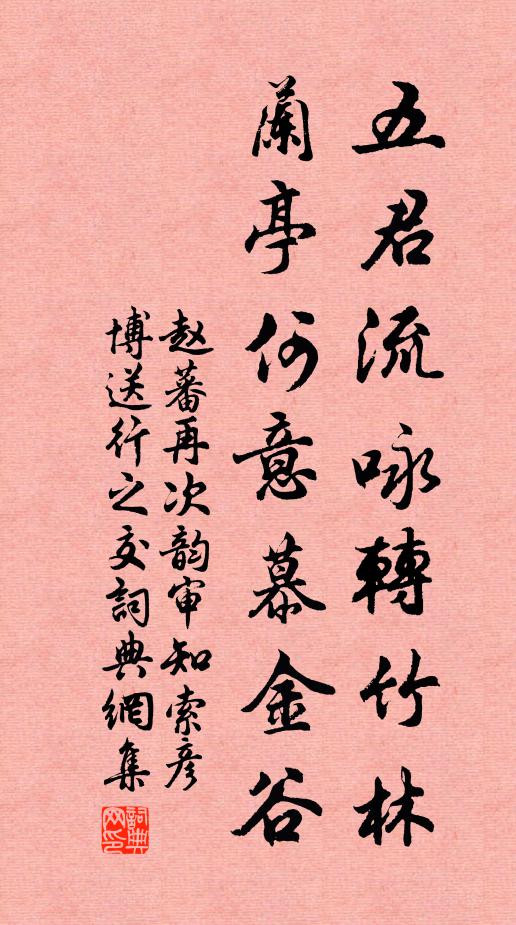 五君流咏轉竹林
蘭亭何意慕金谷
赵蕃再次韵审知索彦
博送行之交詞典網集
詞典网印